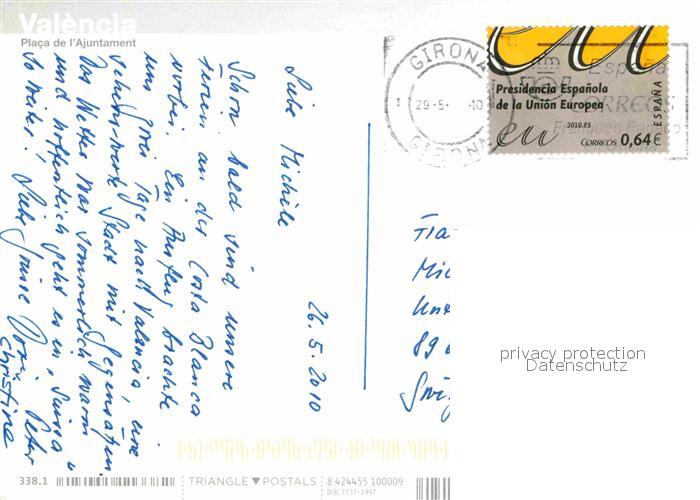 València
Plaça de l'Ajuntament
GIRONA
29-5- -10
GIRONA
España
CORREOS
Presidencia Española
de la Unión Europea
eu
2010.es
CORREOS 0,64€
ESPAÑA
26.5.2010
Liebe Michèle
Schon bald sind unsere
Ferien an der Costa Blanca
vorbei. Ein Ausflug brachte
uns zwei Tage nach Valencia, eine
sehenswerte Stadt mit Gegensätzen.
Das Wetter war sommerlich warm
und hoffentlich geht es in "Suissa"
so weiter. Liebe Grüsse Dori, Peter
Christina
Fra
Mic
89
privacy protection
Datenschutz
338.1
TRIANGLE ▼ POSTALS
8 424455 100009
D(B) 7737-1997